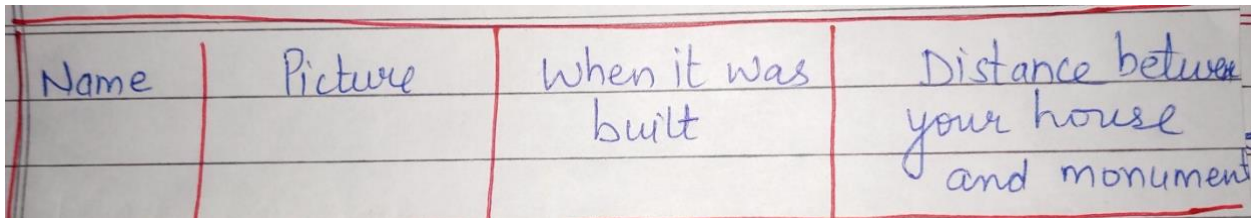 Name Picture When it was built Distance between your house and monument